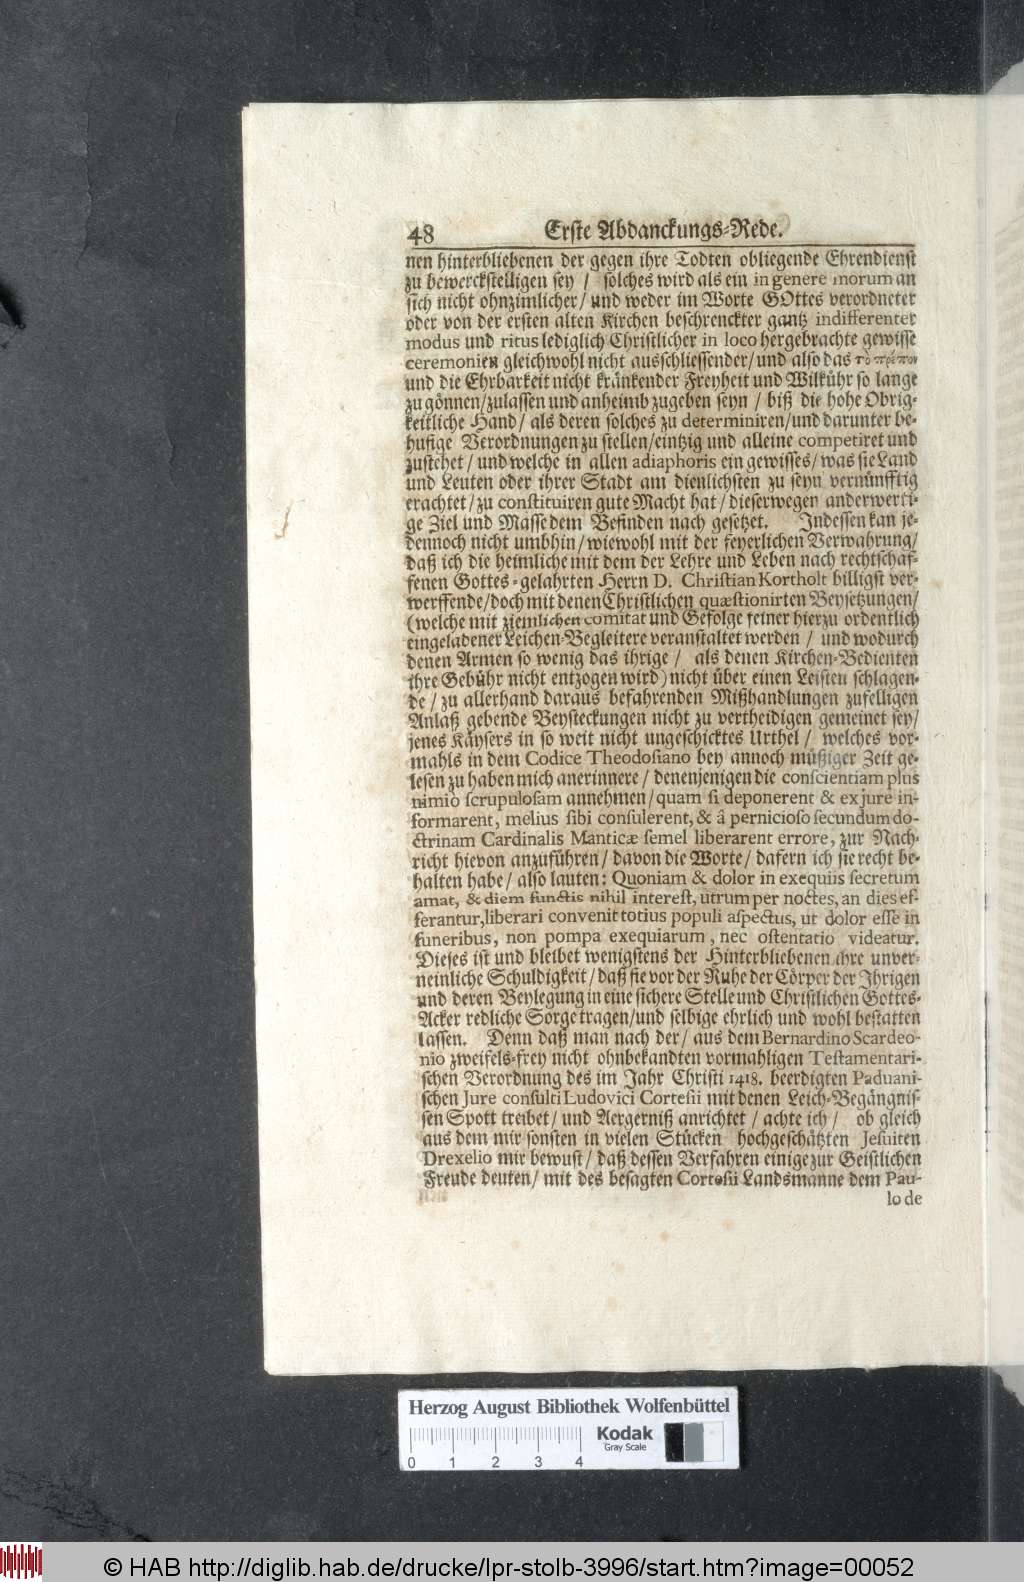 48 Erste Abdanckungs-Rede.
nen hinterbliebenen der gegen ihre Todten obliegende Ehrendienst
zu bewerckstelligen sey / solches wird als ein in genere morum an
sich nicht ohnzimlicher / und weder im Worte GOttes verordneter
oder von der ersten alten Kirchen beschrenckter gantz indifferenter
modus und ritus lediglich Christlicher in loco hergebrachte gewisse
ceremonien gleichwohl nicht ausschliessender / und also das τὸ πρέπον
und die Ehrbarkeit nicht kränkender Freyheit und Wilkühr so lange
zu gönnen / zulassen und anheimb zugeben seyn / biß die hohe Obrig-
keitliche Hand / als deren solches zu determiniren / und darunter be-
hufige Verordnungen zu stellen / eintzig und alleine competiret und
zustehet / und welche in allen adiaphoris ein gewisses / was sie Land
und Leuten oder ihrer Stadt am dienlichsten zu seyn vernünfftig
erachtet / zu constituiren gute Macht hat / dieserwegen anderwerti-
ge Ziel und Masse dem Befinden nach gesetzet. Indessen kan je-
dennoch nicht umbhin / wiewohl mit der feyerlichen Verwahrung /
daß ich die heimliche mit dem der Lehre und Leben nach rechtschaf-
fenen Gottes-gelahrten Herrn D. Christian Kortholt billigst ver-
werffende / doch mit denen Christlichen quæstionirten Beysetzungen /
(welche mit ziemlichen comitat und Gefolge feiner hierzu ordentlich
eingeladener Leichen-Begleitere veranstaltet werden / und wodurch
denen Armen so wenig das ihrige / als denen Kirchen-Bedienten
ihre Gebühr nicht entzogen wird) nicht über einen Leisten schlagen-
de / zu allerhand daraus befahrenden Mißhandlungen zufelligen
Anlaß gebende Beysteckungen nicht zu vertheidigen gemeinet sey /
jenes Käysers in so weit nicht ungeschicktes Urthel / welches vor-
mahls in dem Codice Theodosiano bey annoch müßiger Zeit ge-
lesen zu haben mich anerinnere / denenjenigen die conscientiam plus
nimio scrupulosam annehmen / quam si deponerent & ex jure in-
formarent, melius sibi consulerent, & â pernicioso secundum do-
ctrinam Cardinalis Manticæ semel liberarent errore, zur Nach-
richt hievon anzuführen / davon die Worte / dafern ich sie recht be-
halten habe / also lauten: Quoniam & dolor in exequiis secretum
amat, & diem functis nihil interest, utrum per noctes, an dies ef-
ferantur, liberari convenit totius populi aspectus, ut dolor esse in
funeribus, non pompa exequiarum, nec ostentatio videatur.
Dieses ist und bleibet wenigstens der Hinterbliebenen ihre unver-
neinliche Schuldigkeit / daß sie vor der Ruhe der Cörper der Ihrigen
und deren Beylegung in eine sichere Stelle und Christlichen Gottes-
Acker redliche Sorge tragen / und selbige ehrlich und wohl bestatten
lassen. Denn daß man nach der / aus dem Bernardino Scardeo-
nio zweifels-frey nicht ohnbekandten vormahligen Testamentari-
schen Verordnung des im Jahr Christi 1418. beerdigten Paduani-
schen Jure consulti Ludovici Cortesii mit denen Leich-Begängnis-
sen Spott treibet / und Aergerniß anrichtet / achte ich / ob gleich
aus dem mir sonsten in vielen Stücken hochgeschätzten Jesuiten
Drexelio mir bewust / daß dessen Verfahren einige zur Geistlichen
Freude deuten / mit des besagten Cortesii Landsmanne dem Pau-
lo de
Herzog August Bibliothek Wolfenbüttel
Kodak
Gray Scale
0 1 2 3 4
© HAB http://diglib.hab.de/drucke/lpr-stolb-3996/start.htm?image=00052